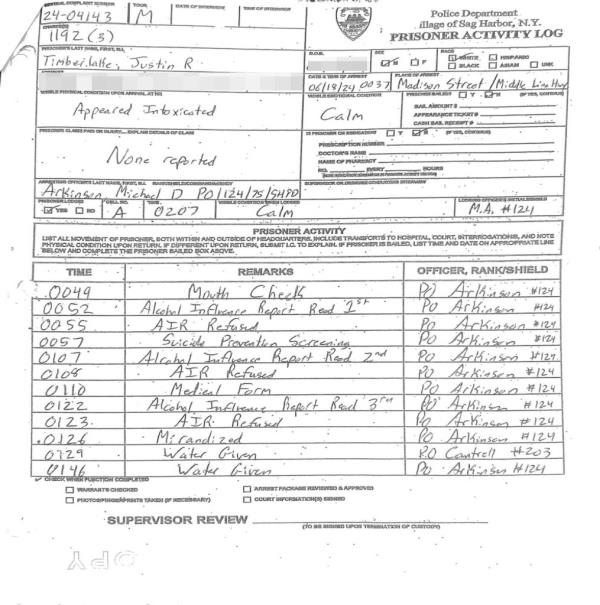 CENTRAL COMPLAINT NUMBER TOUR DATE OF INTERVIEW TIME OF INTERVIEW
24-04143 M
CHARGE(S)
1192 (3)
Police Department
Village of Sag Harbor, N.Y.
PRISONER ACTIVITY LOG
PRISONER'S LAST NAME, FIRST, M.I. D.O.B. SEX RACE
Timberlake, Justin R M F WHITE HISPANIC
BLACK ASIAN UNK
DATE & TIME OF ARREST PLACE OF ARREST
06/18/24 0037 Madison Street / Middle Line Hwy
VISIBLE PHYSICAL CONDITION UPON ARRIVAL AT HQ VISIBLE EMOTIONAL CONDITION PRISONER BAILED? Y N (IF YES, CONTINUE)
Appeared Intoxicated Calm
BAIL AMOUNT $
APPEARANCE TICKET #
CASH BAIL RECEIPT #
PRISONER CLAIMS PAIN OR INJURY... EXPLAIN DETAILS OF CLAIM IS PRISONER ON MEDICATION Y N (IF YES, CONTINUE)
None reported
PRESCRIPTION NUMBER
DOCTOR'S NAME
NAME OF PHARMACY
RQ. EVERY HOURS
ARRESTING OFFICER'S LAST NAME, FIRST, M.I. RANK/SHIELD/COMMAND/SQUAD SUPERVISOR OR DESIGNEE CONDUCTING INTERVIEW
Arkinson Michael D PO/124/75/SHPD
PRISONER LODGED CELL NO. TIME VISIBLE CONDITION WHEN LODGED LODGING OFFICER'S INITIALS/SHIELD
YES NO A 0207 Calm M.A. #124
PRISONER ACTIVITY
LIST ALL MOVEMENT OF PRISONER, BOTH WITHIN AND OUTSIDE OF HEADQUARTERS, INCLUDE TRANSPORTS TO HOSPITAL, COURT, INTERROGATIONS, AND NOTE
PHYSICAL CONDITION UPON RETURN. IF DIFFERENT UPON RETURN, SUBMIT I.C. TO EXPLAIN. IF PRISONER IS BAILED, LIST TIME AND DATE ON APPROPRIATE LINE
BELOW AND COMPLETE THE PRISONER BAILED BOX ABOVE.
TIME REMARKS OFFICER, RANK/SHIELD
0049 Mouth Check PO Arkinson #124
0052 Alcohol Influence Report Read 1st PO Arkinson #124
0055 AIR Refused PO Arkinson #124
0057 Suicide Prevention Screening PO Arkinson #124
0107 Alcohol Influence Report Read 2nd PO Arkinson #124
0108 AIR Refused PO Arkinson #124
0110 Medical Form PO Arkinson #124
0122 Alcohol Influence Report Read 3rd PO Arkinson #124
0123 AIR Refused PO Arkinson #124
0126 Mirandized PO Arkinson #124
0129 Water Given PO Cantrell #203
0146 Water Given PO Arkinson #124
CHECK WHEN FUNCTION COMPLETED
WARRANTS CHECKED ARREST PACKAGE REVIEWED & APPROVED
PHOTOS/PRINTS TAKEN (IF NECESSARY) COURT INFORMATION(S) SIGNED
SUPERVISOR REVIEW
(TO BE SIGNED UPON TERMINATION OF CUSTODY)
COPY